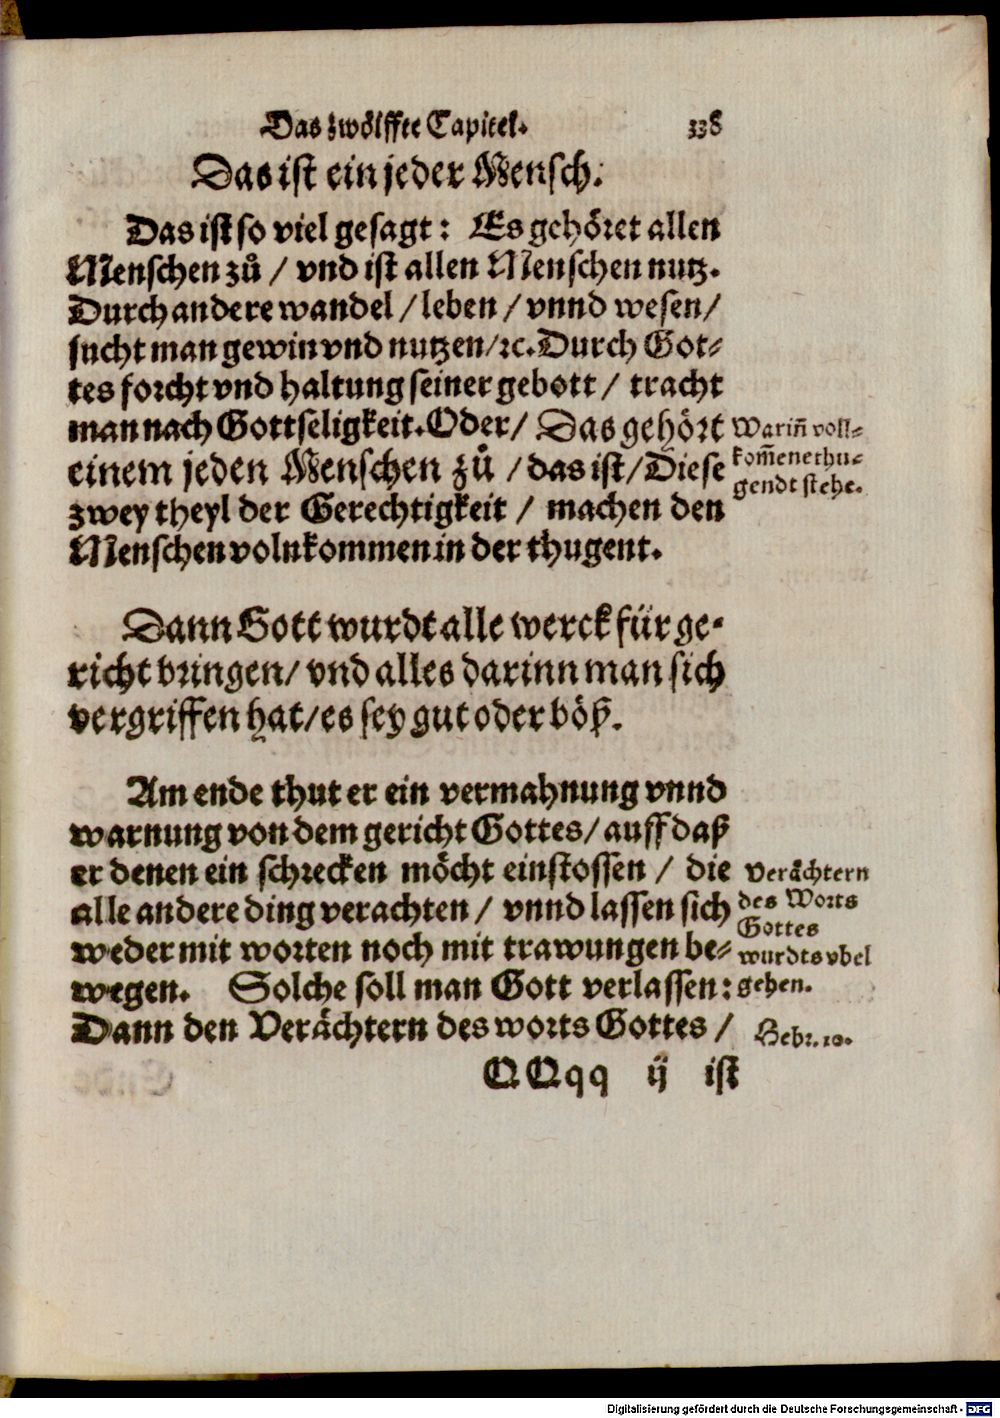 Das zwölffte Capitel. 338
Das ist ein jeder Mensch.
Das ist so viel gesagt: Es gehöret allen
Menschen zů / vnd ist allen Menschen nutz.
Durch andere wandel / leben / vnnd wesen /
sucht man gewin vnd nutzen / ꝛc. Durch Got-
tes forcht vnd haltung seiner gebott / tracht
man nach Gottseligkeit. Oder / Das gehört
einem jeden Menschen zů / das ist / Diese
zwey theyl der Gerechtigkeit / machen den
Menschen volnkommen in der thugent.
Warin̄ voll-
kom̄ene thu-
gendt stehe.
Dann Gott wurdt alle werck für ge-
richt bringen / vnd alles darinn man sich
vergriffen hat / es sey gut oder böß.
Am ende thut er ein vermahnung vnnd
warnung von dem gericht Gottes / auff daß
er denen ein schrecken möcht einstossen / die
alle andere ding verachten / vnnd lassen sich
weder mit worten noch mit trawungen be-
wegen. Solche soll man Gott verlassen:
Dann den Verächtern des worts Gottes /
Verächtern
des Worts
Gottes
wurdts vbel
gehen.
Hebr. 10.
QQqq ij ist
Digitalisierung gefördert durch die Deutsche Forschungsgemeinschaft - DFG